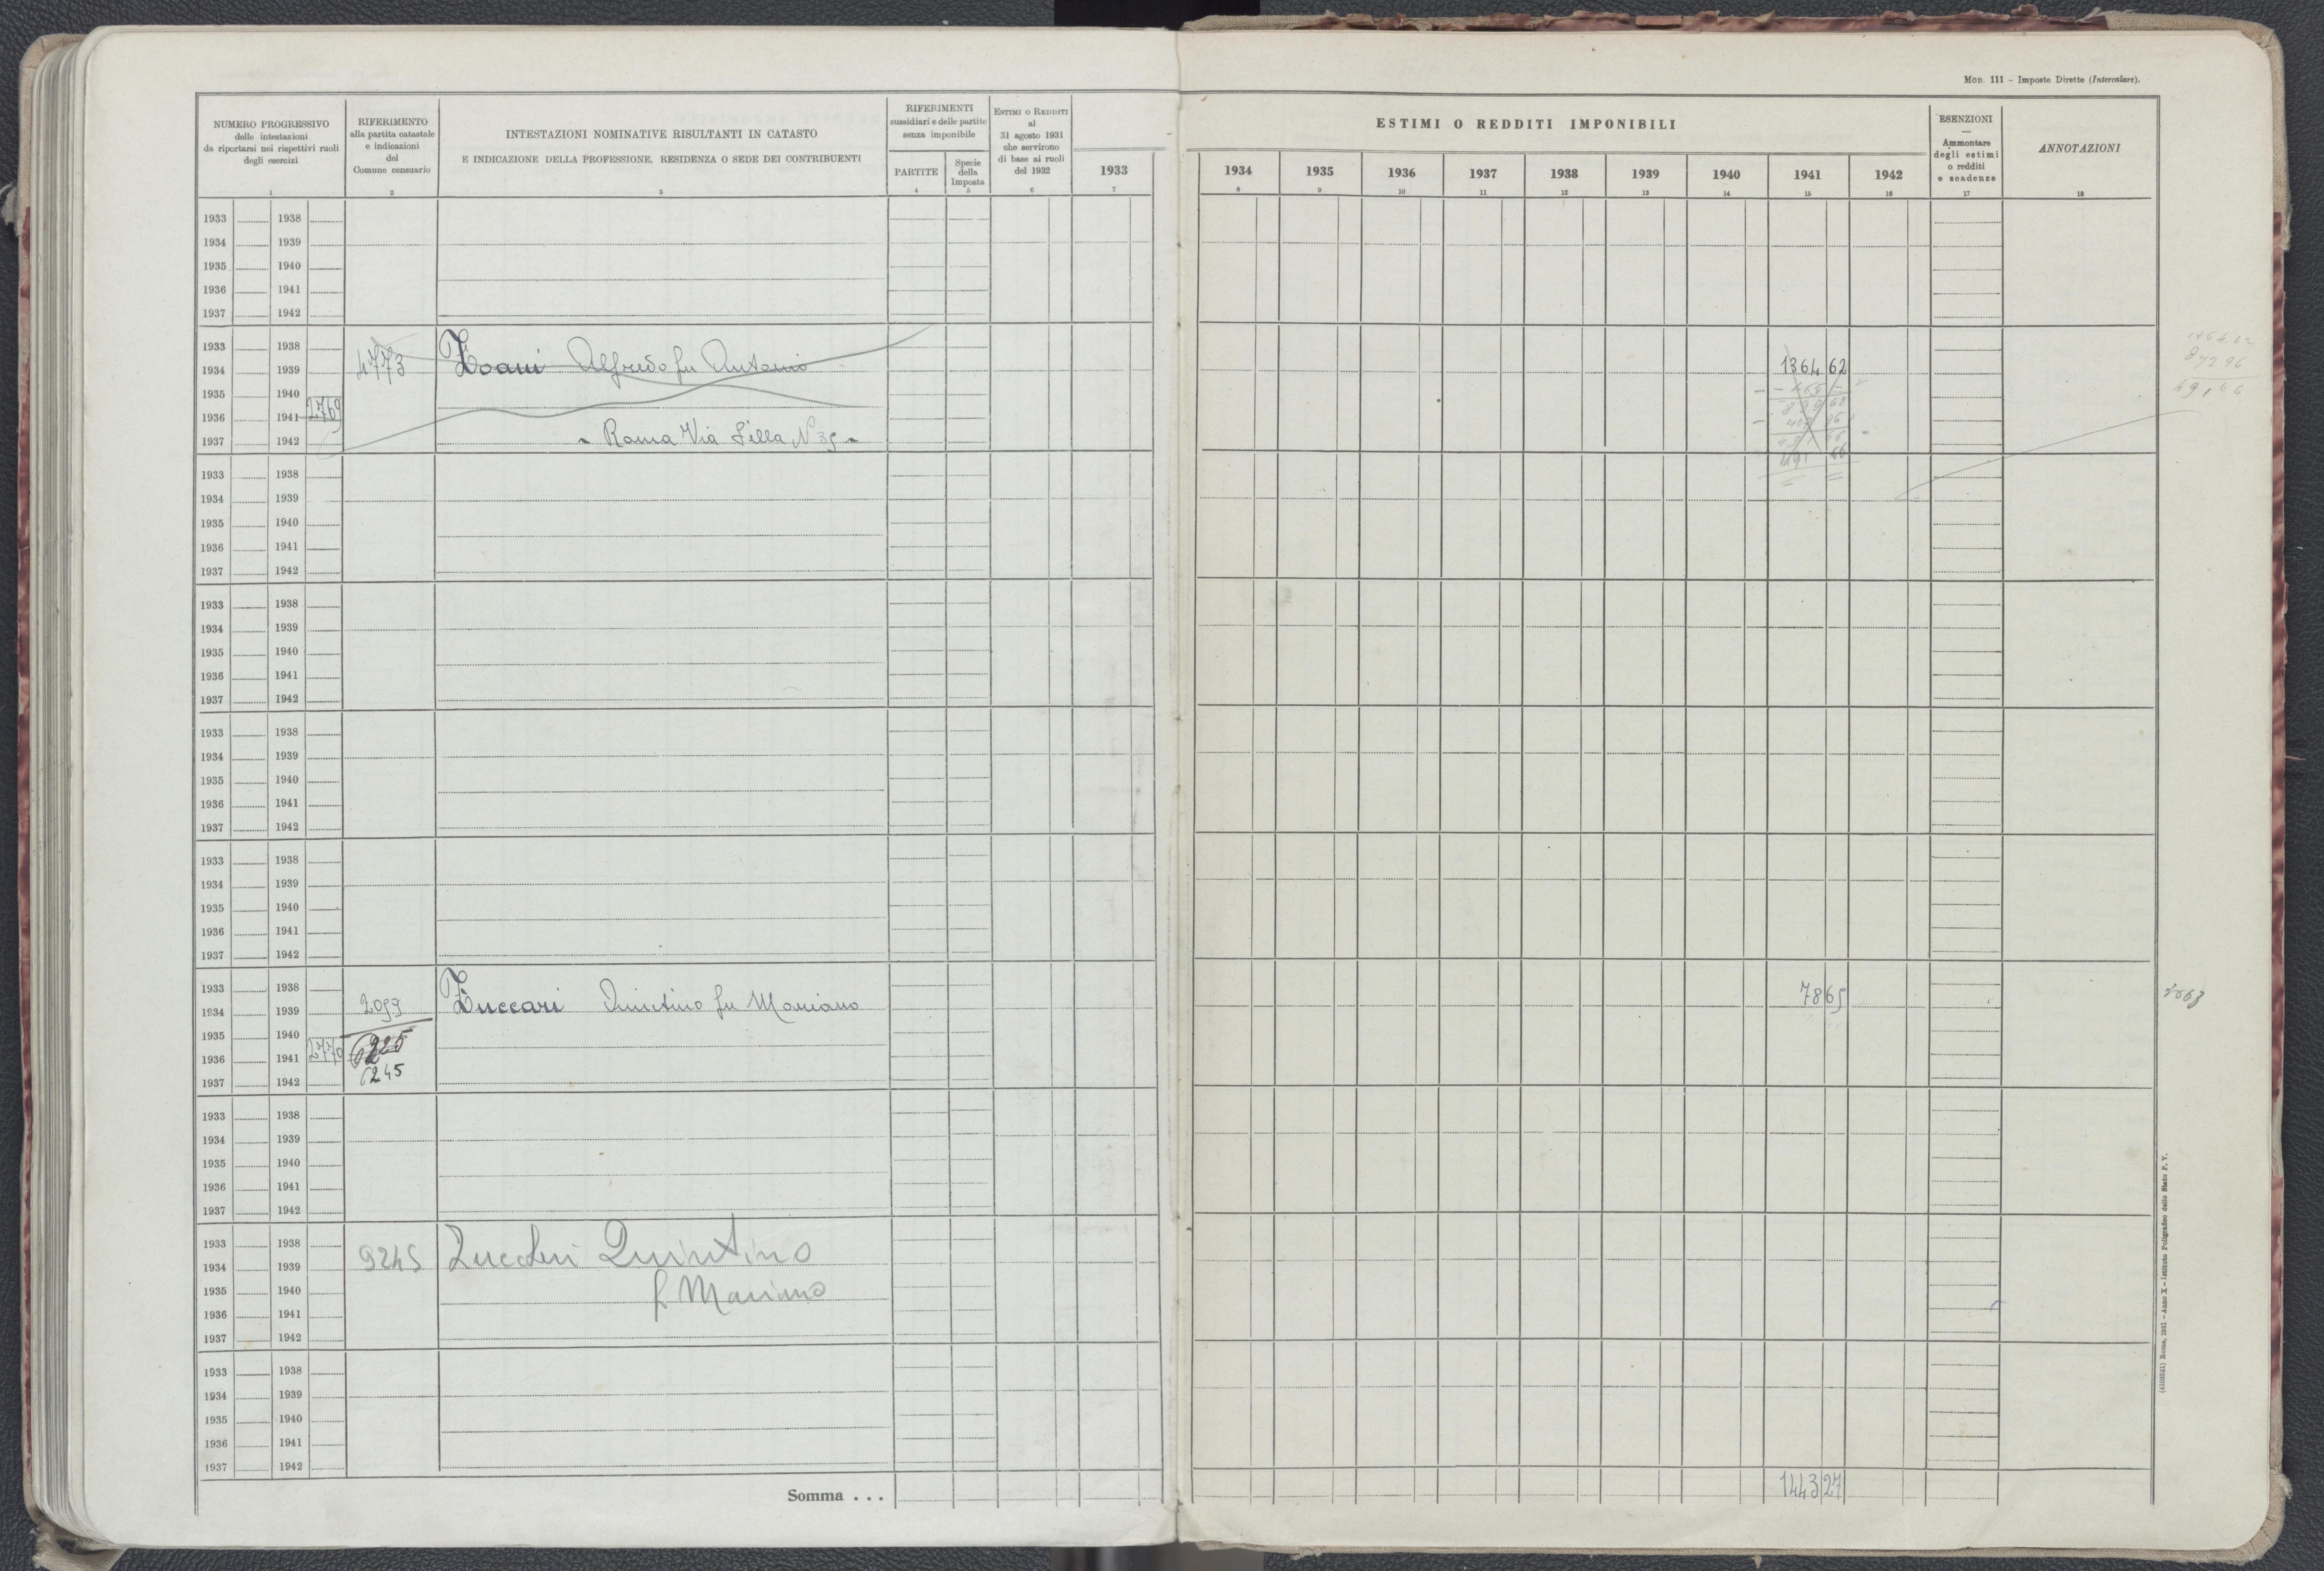 Mod. 111 - Imposte Dirette (Intercalare).
NUMERO PROGRESSIVO
delle intestazioni
da riportarsi nei rispettivi ruoli
degli esercizi
1
RIFERIMENTO
alla partita catastale
e indicazioni
del
Comune censuario
2
INTESTAZIONI NOMINATIVE RISULTANTI IN CATASTO
E INDICAZIONE DELLA PROFESSIONE, RESIDENZA O SEDE DEI CONTRIBUENTI
3
RIFERIMENTI
sussidiari e delle partite
senza imponibile
PARTITE
4
Specie
della
Imposta
5
ESTIMI O REDDITI
al
31 agosto 1931
che servirono
di base ai ruoli
del 1932
6
1933
7
ESTIMI O REDDITI IMPONIBILI
1934 1935 1936 1937 1938 1939 1940 1941 1942
8 9 10 11 12 13 14 15 16
ESENZIONI
—
Ammontare
degli estimi
o redditi
e scadenze
17
ANNOTAZIONI
18
1933 1938
1934 1939
1935 1940
1936 1941
1937 1942
1933 1938
1934 1939 4773 Zoani Alfredo fu Antonio 1364 62
1935 1940
1936 1941 2769
1937 1942 - Roma Via Silla N 35 -
1933 1938
1934 1939
1935 1940
1936 1941
1937 1942
1933 1938
1934 1939
1935 1940
1936 1941
1937 1942
1933 1938
1934 1939
1935 1940
1936 1941
1937 1942
1933 1938
1934 1939
1935 1940
1936 1941
1937 1942
1933 1938
1934 1939 2059 Zuccari Quintino fu Mariano 78 65
1935 1940
1936 1941 2770 6225
1937 1942 6245
1933 1938
1934 1939
1935 1940
1936 1941
1937 1942
1933 1938
1934 1939 9245 Quintino
1935 1940 f Mariano
1936 1941
1937 1942
1933 1938
1934 1939
1935 1940
1936 1941
1937 1942
Somma . . . 1443 27
(4100331) Roma, 1931 - Anno X - Istituto Poligrafico dello Stato P. V.